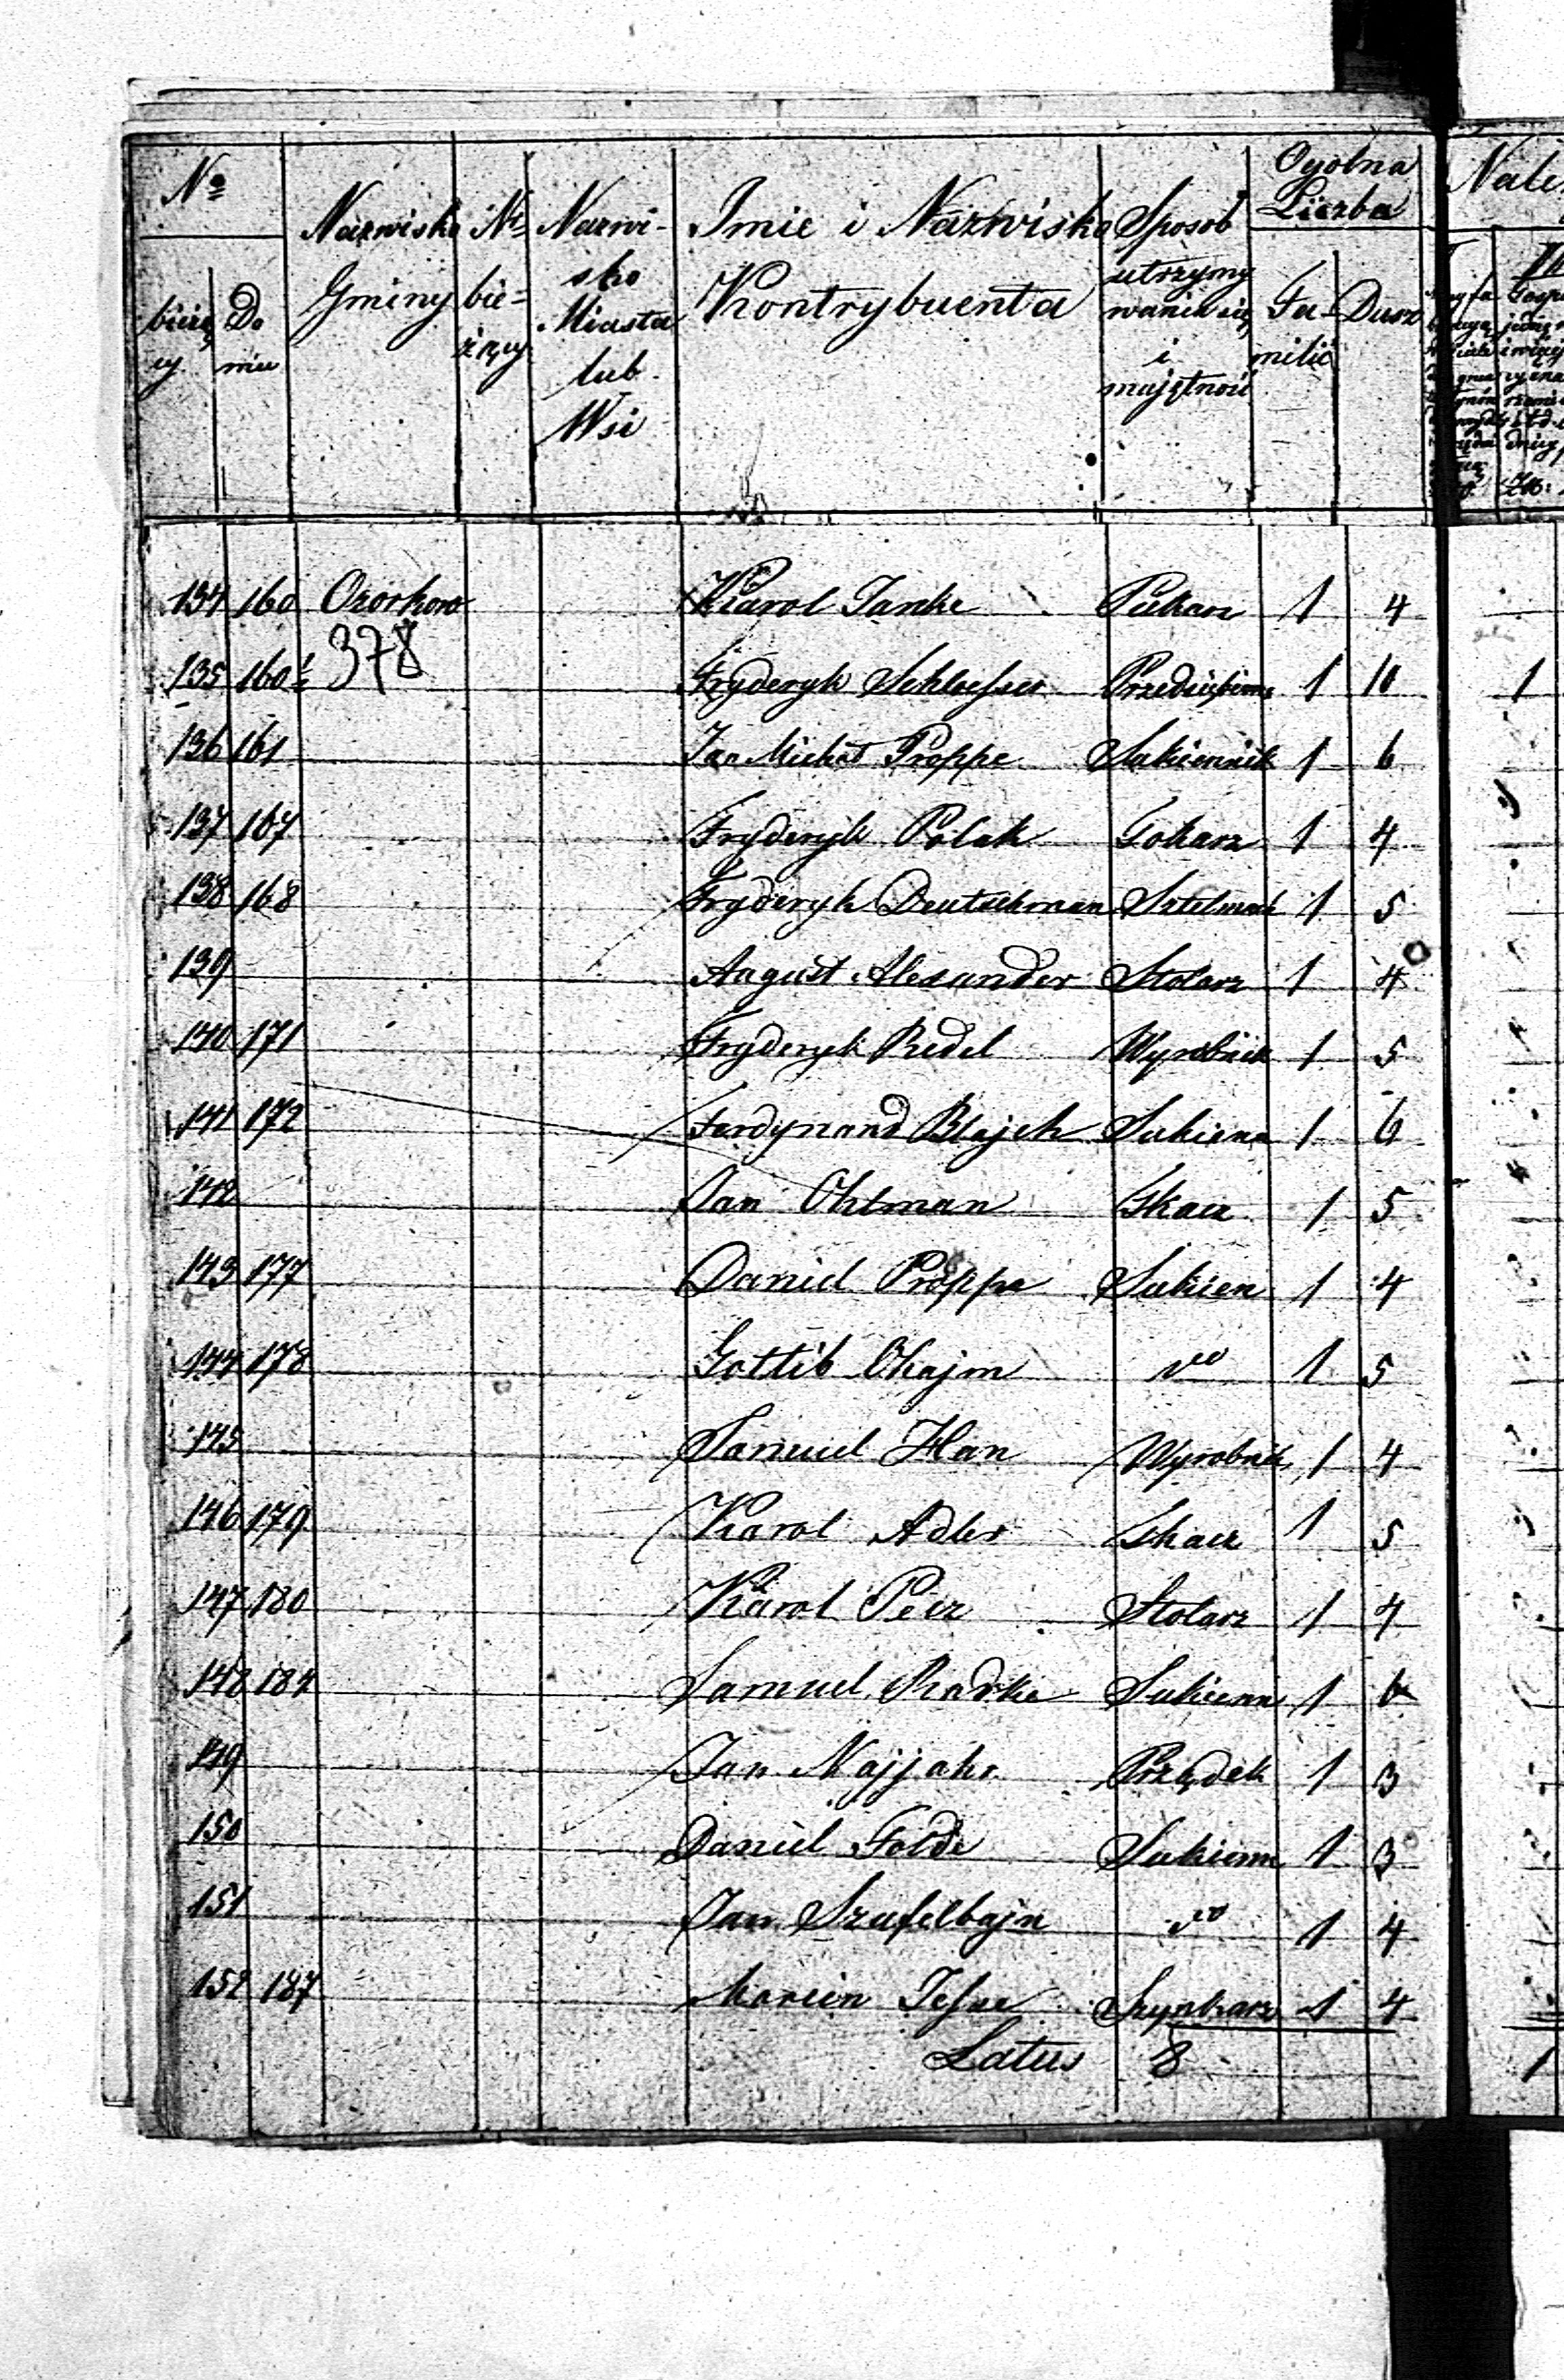 No
bieżący
Domu
Nazwisko Gminy
No bieżący
Nazwisko Miasta lub Wsi
Imie i Nazwisko Kontrybuenta
Sposob utrzymywania się i majętność
Ogolna Liczba
Familii
Dusz
134 160 Ozorkow Karol Janke Piekarz 1 4
378
135 160½ Fryderyk Schloesser 1 10 1
136 161 Jan Michał Proppe Sukiennik 1 6
137 167 Fryderyk Polak Tokarz 1 4
138 168 Fryderyk Deutschman Sztelmach 1 5
139 August Alexander Stolarz 1 4
140 171 Fryderyk Redel Wyrobnik 1 5
141 172 Ferdynand Blajch Sukienn 1 6
142 Jan Ohlman Tkacz 1 5
143 177 Daniel Proppe Sukien 1 4
144 178 Gottlib 1 5
145 Samuel Han Wyrobnik 1 4
146 179 Karol Adler Tkacz 1 5
147 180 Karol Stolarz 1 4
148 184 Samuel Radke Sukienn 1 6
149 Jan Najjahr Prządek 1 3
150 Daniel Sukienn 1 3
151 Jan Szufelbajn 1 4
152 187 Marcin Szynkarz 1 4
Latus 8 1